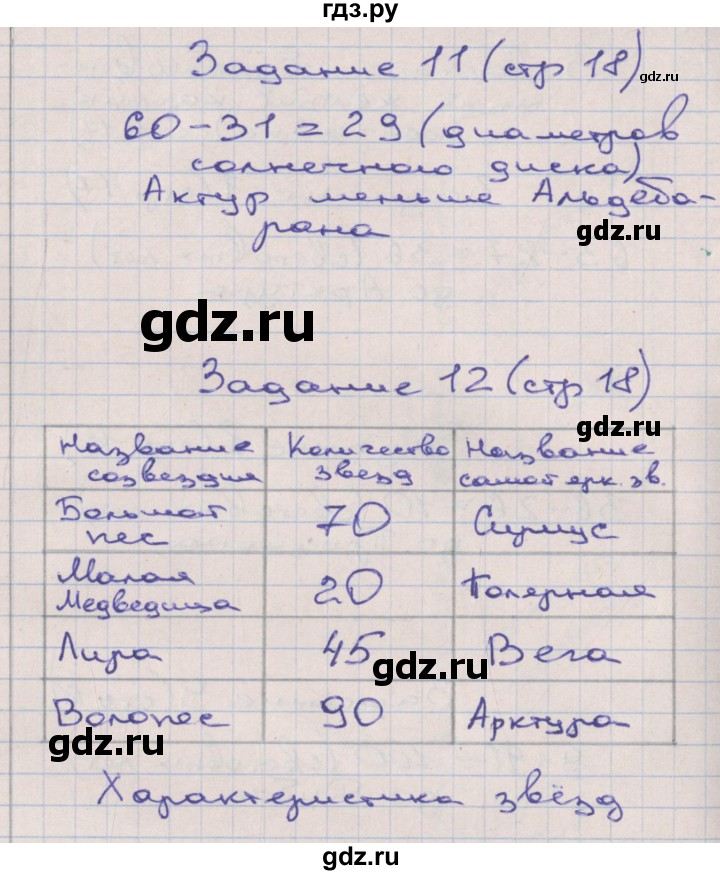 гдз.ру
Задание 11 (стр 18)
gdz.ru
60-31=29 (диаметров
солнечного диска)
Актур меньше Альдеба-
рана
gdz.ru
gdz.ru
Задание 12 (стр 18)
gdz.ru
Название созвездия Количество звезд Название самой ярк. зв.
Большой пес 70 Сириус
Малая Медведица 20 Полярная
Лира 45 Вега
gdz.ru
Волопес 90 Арктура
gdz.ru
Характеристика звёзд
gdz.ru